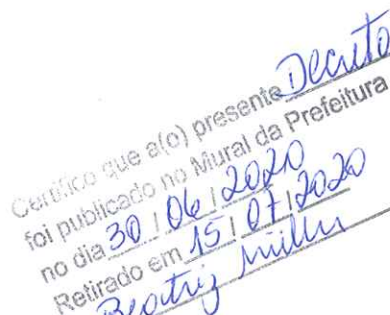 Certifico que a(o) presente Decreto
foi publicado no Mural da Prefeitura
no dia 30 / 06 / 2020
Retirado em 15 / 07 / 2020
Beatriz Müller